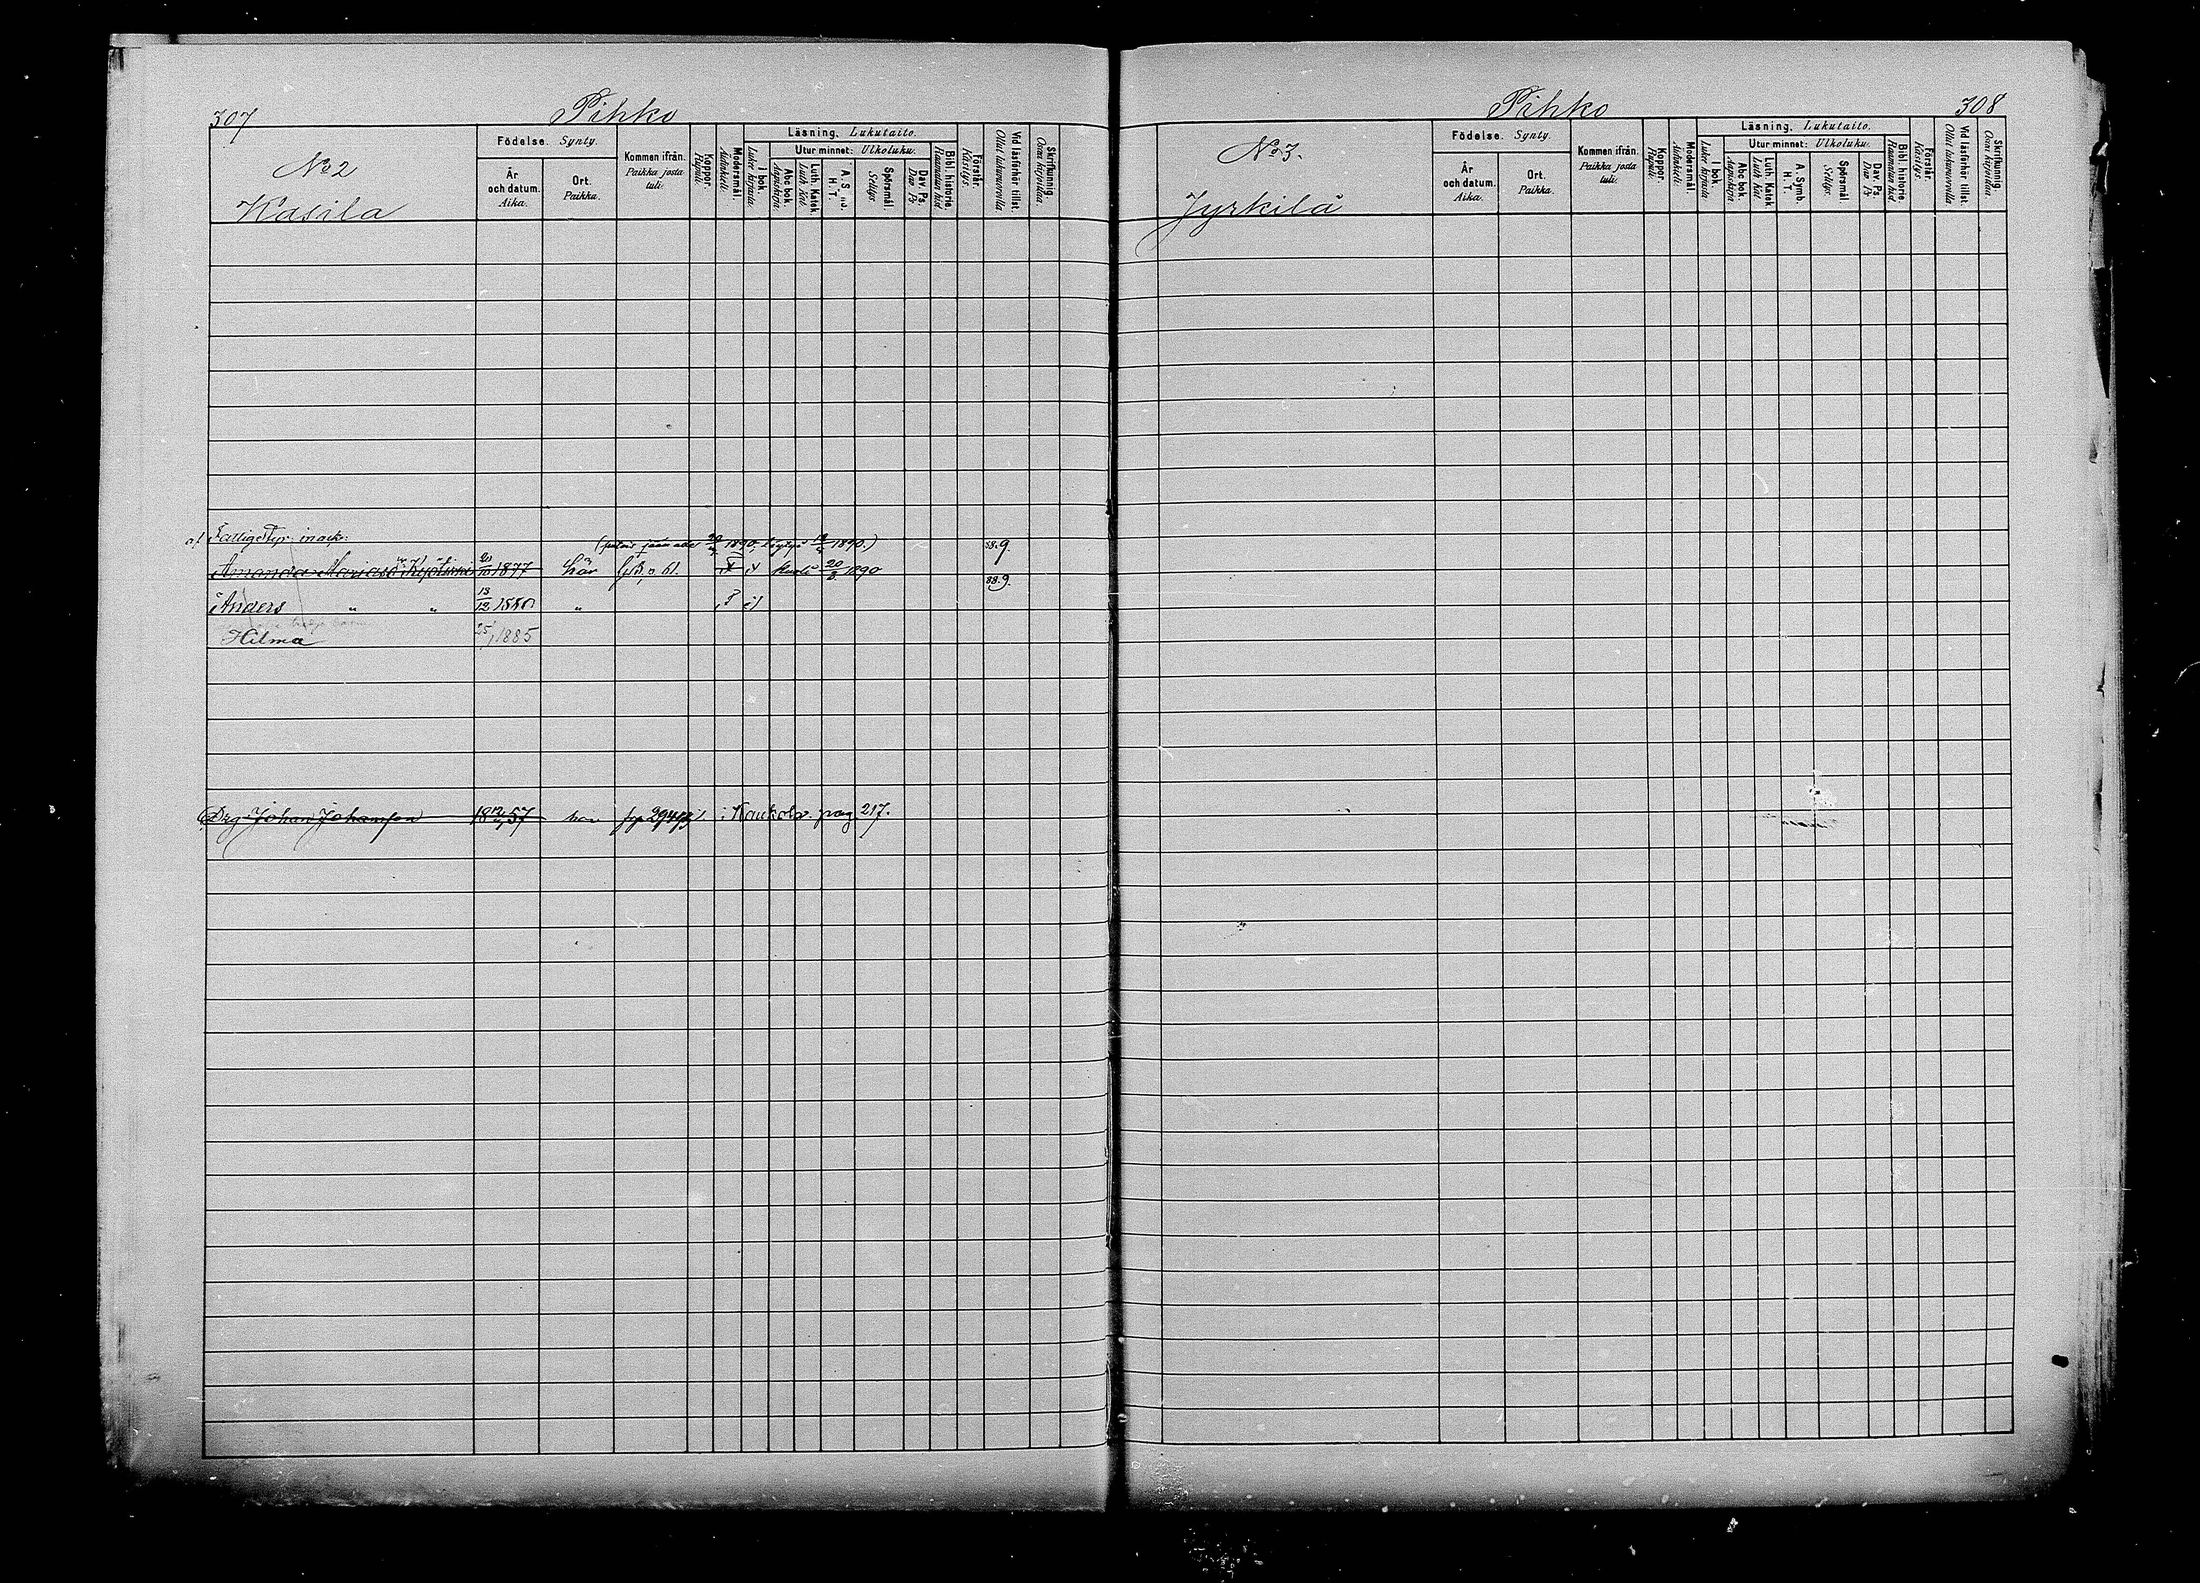 307 Pihko
No 2
Kasila
Födelse. Synty.
År och datum. Aika.
Ort. Paikka.
Kommen ifrån. Paikka josta tuli.
Koppor. Rupuli.
Modersmål. Äidinkieli.
Läsning. Lukutaito.
I bok. Luku kirjasta.
Utur minnet: Ulkoluku.
Abc bok. Aapiskirja.
Luth. Katek. Luth. Kat.
H. T.
Spörsmål. Selitys.
Dav. Ps. Dav. Ps.
Bibl. historie. Raamatun hist.
Förstår. Käsitys.
Vid läsförhör tillst. Ollut lukuvuorolla
Skrifkunnig. Osaa kirjoittaa.
1890, 1890.) 88. 9.
Amanda Maria 20/10 1877 här 20/8 1890 88. 9.
Anders " " 13/12 188 "
Hilma 25/1 1885
Drg Johan Johansson 18 57 här i Kaukola pag 217.
Pihko 308
No 3.
Jyrkilä
Födelse. Synty.
År och datum. Aika.
Ort. Paikka.
Kommen ifrån. Paikka josta tuli.
Koppor. Rupuli.
Modersmål. Äidinkieli.
Läsning. Lukutaito.
I bok. Luku kirjasta.
Utur minnet: Ulkoluku.
Abc bok. Aapiskirja
Luth. Katek. Luth. Kat
A. Symb. H. T.
Spörsmål. Selitys.
Dav. Ps. Dav. Ps
Bibl. historie. Raamatun hist
Förstår. Käsitys.
Vid läsförhör tillst. Ollut lukuvuorolla
Skrifkunnig. Osaa kirjoittaa.